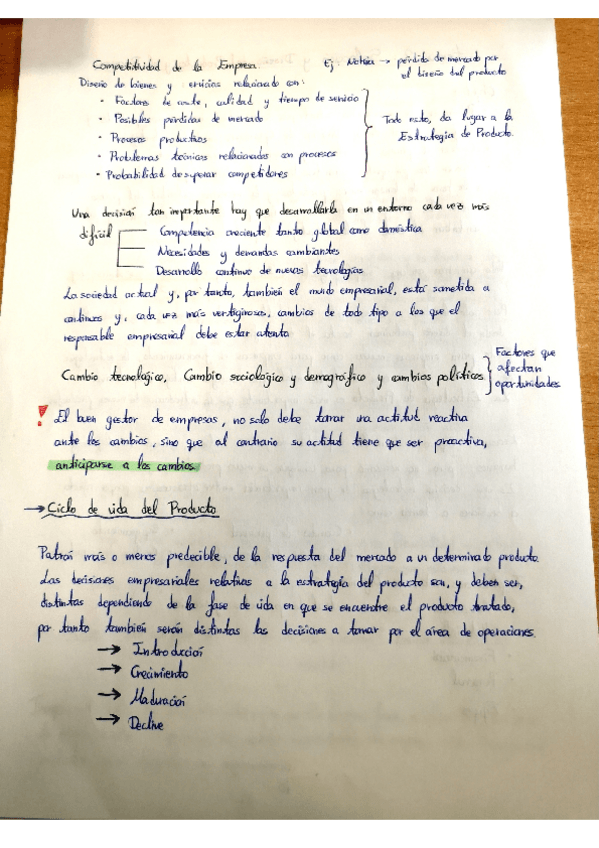 Competitividad de la Empresa. Ej Nokia → pérdida de mercado por
el diseño del producto
Diseño de bienes y servicios relacionado con:
· Factores de coste, calidad y tiempo de servicio
· Posibles pérdidas de mercado
· Procesos productivos
· Problemas técnicos relacionados con procesos
· Probabilidad de superar competidores
Todo esto, da lugar a la
Estrategia de Producto.
Una decisión tan importante hay que desarrollarla en un entorno cada vez más
difícil
Competencia creciente tanto global como doméstica
Necesidades y demandas cambiantes
Desarrollo continuo de nuevas tecnologías
La sociedad actual y, por tanto, también el mundo empresarial, está sometida a
continuos y, cada vez más vertiginosos, cambios de todo tipo a los que el
responsable empresarial debe estar atento
Cambio tecnológico, Cambio sociológico y demográfico y cambios políticos
Factores que
afectan
oportunidades
! El buen gestor de empresas, no solo debe tomar una actitud reactiva
ante los cambios, sino que al contrario su actitud tiene que ser proactiva,
anticiparse a los cambios
→ Ciclo de vida del Producto
Patrón más o menos predecible, de la respuesta del mercado a un determinado producto.
Las decisiones empresariales relativas a la estrategia del producto son, y deben ser,
distintas dependiendo de la fase de vida en que se encuentre el producto tratado,
por tanto también serán distintas las decisiones a tomar por el área de operaciones.
→ Introducción
→ Crecimiento
→ Maduración
→ Declive